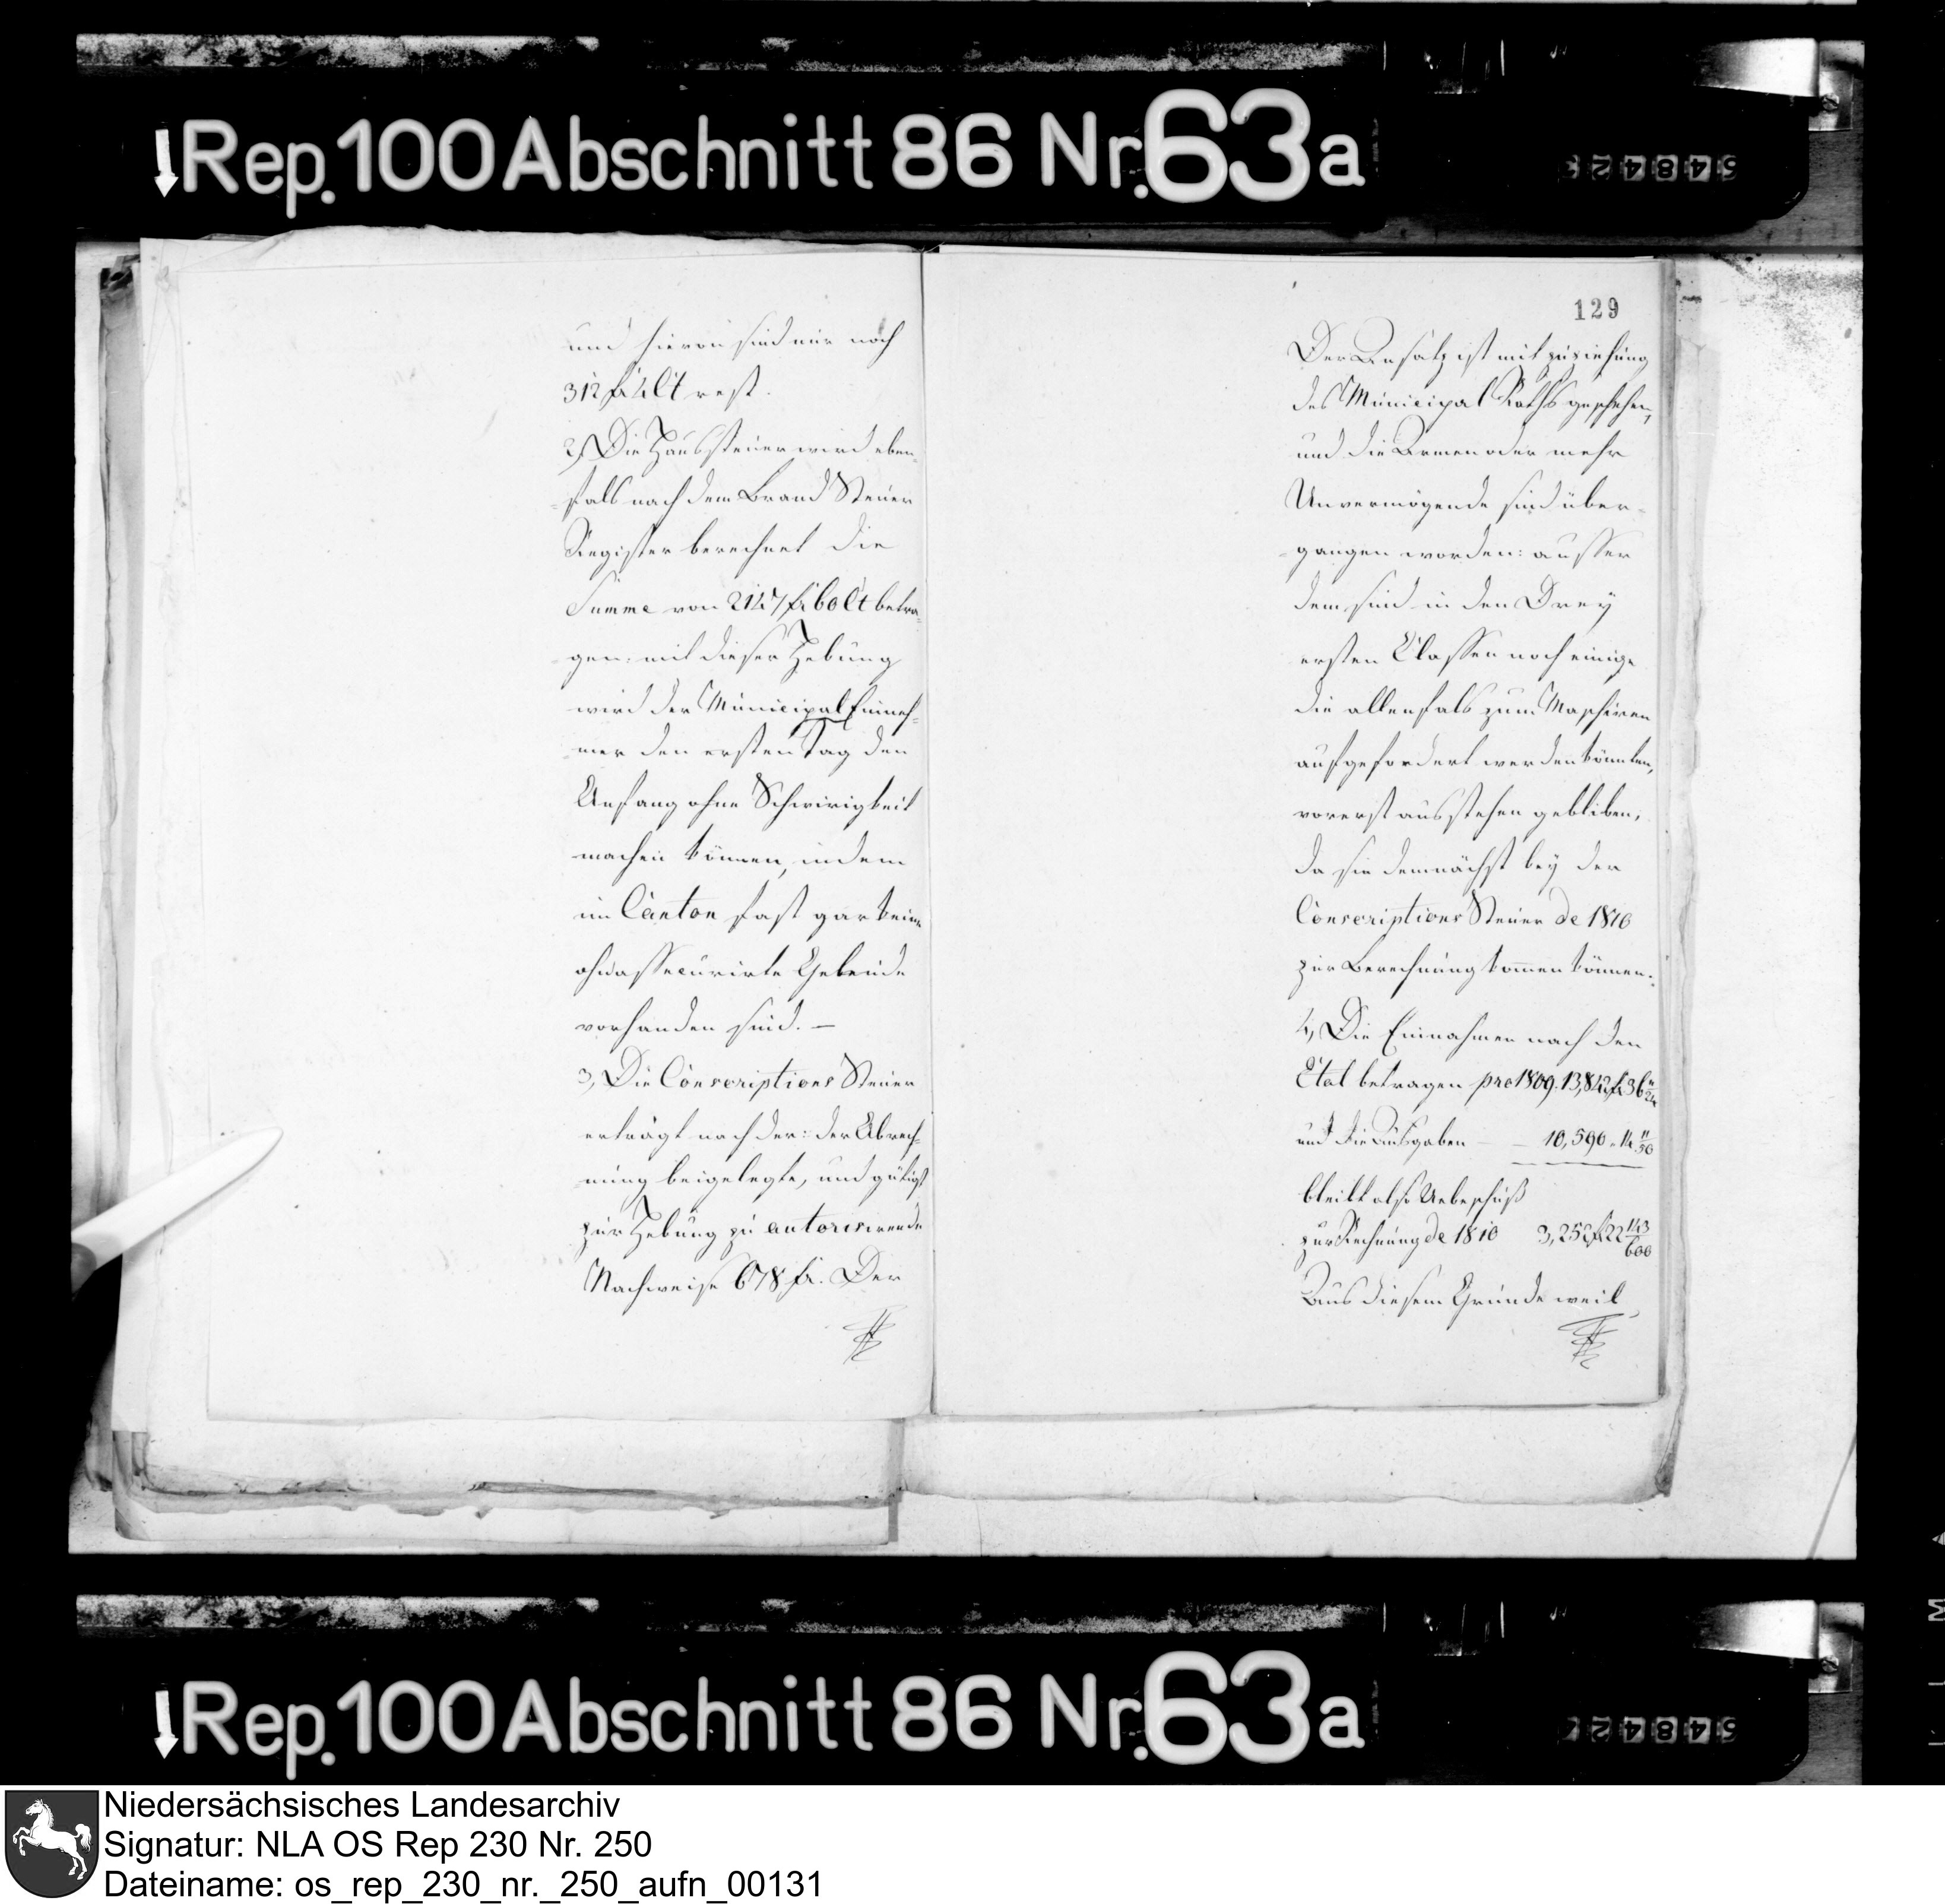 Rep. 100 Abschnitt 86 Nr. 63a
und hievon sind nur noch
312 fr 4 Ct rest.
2, Die Haussteuer wird eben¬
¬fals nach dem Brand Steuer
Register berechnet die
Summe von 2147 fr 60 Ct betra¬
gen: mit dieser Hebung
wird der Municipal Einneh¬
mer den ersten Tag den
Anfang ohne Schwirigkeit
machen können, indem
im Canton fast gar keine
ohnassecurirte Gebeude
vorhanden sind. —
3, Die Conscriptions Steuer
erträgt nach der: der Abrech¬
nung beigelegte, und gütigst
zur Hebung zu autorisirende
Nachweise 678 fr. Der
129
Der Ansatz ist mit zuziehung
des Municipal Raths geschehen,
und die Armen oder mehr
Unvermögende sind über¬
gangen worden: ausser
dem sind in den Drey
ersten Classen noch einige
die allenfals zum Maschiren
aufgefordert werden könnten,
vorerst ausstehen gebliben,
da sie demnächst bey der
Conscriptions Steuer de 1810
zur Berechnung kommen können.
4, Die Einnahmen nach den
Etat betragen pro 1809. 13,842 fr 36
und die Ausgaben — 10,590 " 14 11/50
bleibt also Uebeschuß
zur Rechnung de 1810 3,252 fr 22 143/600
Aus diesem Grunde weil
Rep. 100 Abschnitt 86 Nr. 63a
Niedersächsisches Landesarchiv
Signatur: NLA OS Rep 230 Nr. 250
Dateiname: os_rep_230_nr._250_aufn_00131